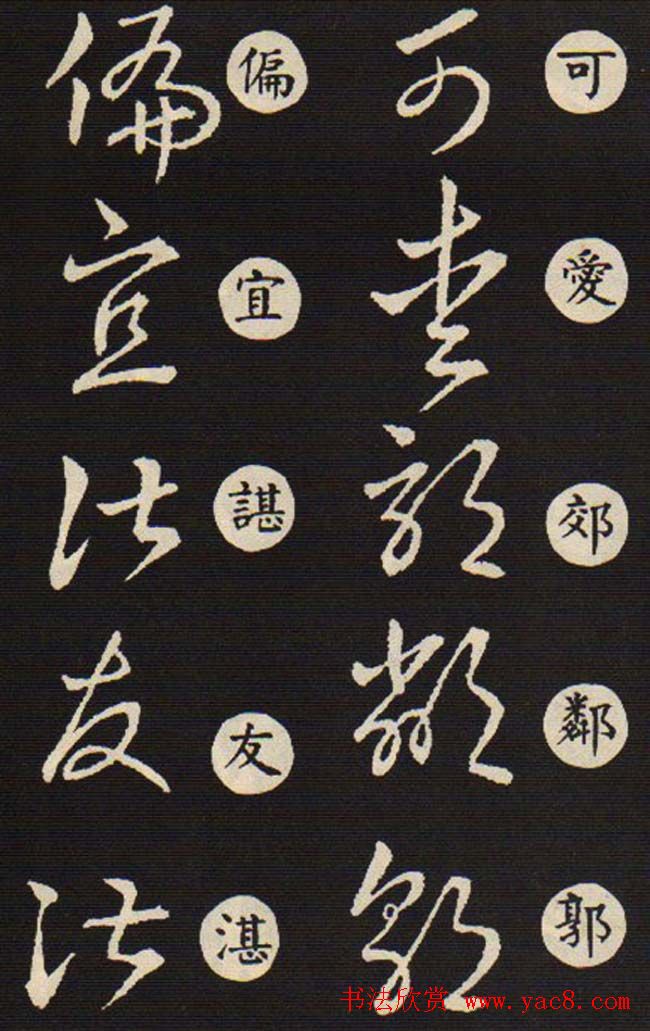 可愛郊鄰郭
偏宜諶友湛
书法欣赏 www.yac8.com